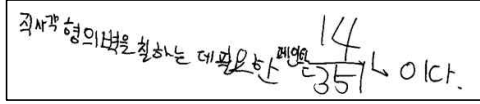 직사각형의 벽을 칠하는 데 필요한 페인트는 14/35 L이다.